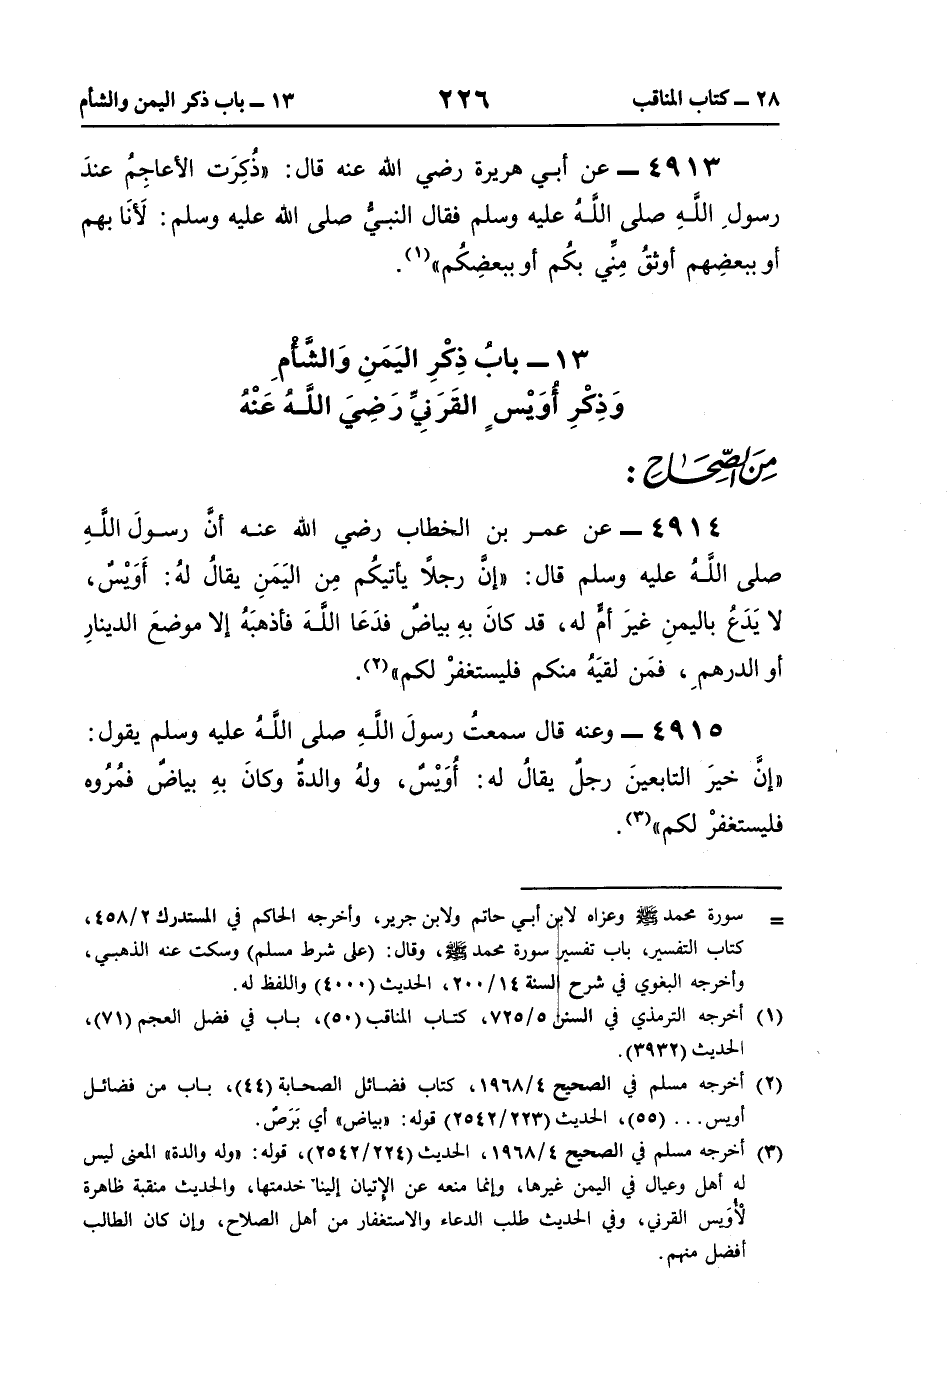 ٢٨ ــ كتاب المناقب ٢٢٦ ١٣ ــ باب ذكر اليمن والشأم
٤٩١٣ ــ عن أبي هريرة رضي الله عنه قال: «ذُكِرَت الأعاجِمُ عندَ
رسولِ اللَّهِ صلى اللَّهُ عليه وسلم فقال النبيُّ صلى الله عليه وسلم: لَأنَا بهم
أو ببعضِهم أوثقُ مِنِّي بكُم أو ببعضِكُم»(١).
١٣ ــ بابُ ذِكْرِ اليَمَنِ وَالشَّأْمِ
وَذِكْرِ أُوَيْسٍ القَرَنِيِّ رَضِيَ اللَّهُ عَنْهُ
مِنَ الصِّحَاح:
٤٩١٤ ــ عن عمر بن الخطاب رضي الله عنه أنَّ رسولَ اللَّهِ
صلى اللَّهُ عليه وسلم قال: «إنَّ رجلاً يأتيكُم مِن اليَمَنِ يقالُ لهُ: أُوَيْسٌ،
لا يَدَعُ باليمنِ غيرَ أمٍّ له، قد كانَ بهِ بياضٌ فدَعَا اللَّهَ فأذهبَهُ إلا موضعَ الدينارِ
أو الدرهمِ، فمَن لقيَهُ منكم فليستغفرْ لكم»(٢).
٤٩١٥ ــ وعنه قال سمعتُ رسولَ اللَّهِ صلى اللَّهُ عليه وسلم يقول:
«إنَّ خيرَ التابعينَ رجلٌ يقالُ له: أُوَيْسٌ، ولهُ والدةٌ وكانَ بهِ بياضٌ فمُرُوه
فليستغفرْ لكم»(٣).
= سورة محمد ﷺ وعزاه لابن أبي حاتم ولابن جرير، وأخرجه الحاكم في المستدرك ٤٥٨/٢،
كتاب التفسير، باب تفسير سورة محمد ﷺ، وقال: (على شرط مسلم) وسكت عنه الذهبي،
وأخرجه البغوي في شرح السنة ٢٠٠/١٤، الحديث (٤٠٠٠) واللفظ له.
(١) أخرجه الترمذي في السنن ٧٢٥/٥، كتاب المناقب (٥٠)، باب في فضل العجم (٧١)،
الحديث (٣٩٣٢).
(٢) أخرجه مسلم في الصحيح ١٩٦٨/٤، كتاب فضائل الصحابة (٤٤)، باب من فضائل
أويس... (٥٥)، الحديث (٢٥٤٢/٢٢٣) قوله: «بياض» أي بَرَصٌ.
(٣) أخرجه مسلم في الصحيح ١٩٦٨/٤، الحديث (٢٥٤٢/٢٢٤)، قوله: «وله والدة» المعنى ليس
له أهل وعيال في اليمن غيرها، وإنما منعه عن الإتيان إلينا خدمتها، والحديث منقبة ظاهرة
لأُوَيس القرني، وفي الحديث طلب الدعاء والاستغفار من أهل الصلاح، وإن كان الطالب
أفضل منهم.